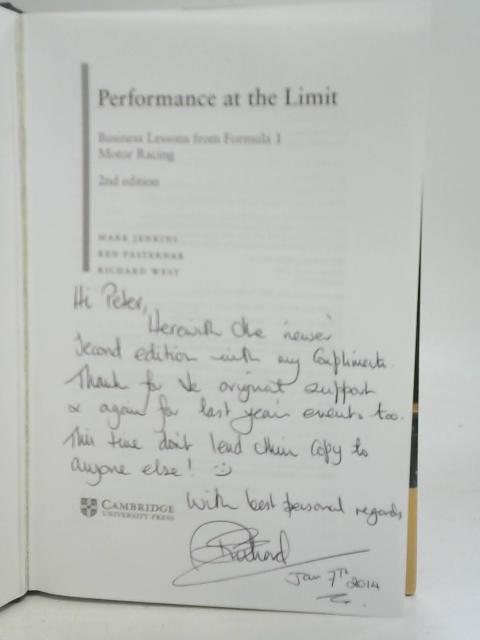 Performance at the Limit
Business Lessons from Formula 1
Motor Racing
2nd edition
MARK JENKINS
KEN PASTERNAK
RICHARD WEST
Hi Peter,
Herewith the 'newer'
Second edition with my Compliments.
Thanks for the original support
& again for last years events too.
This time don't lend this copy to
anyone else! :)
With best personal regards,
CAMBRIDGE
UNIVERSITY PRESS
Richard
Jan 7th 2014